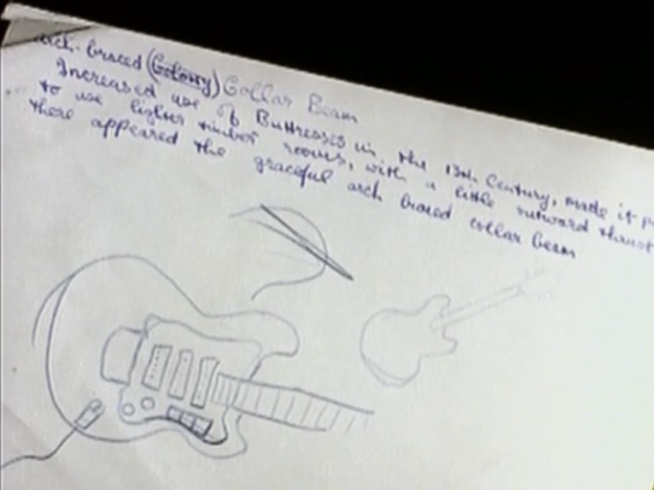 arch-braced (Colony) Collar Beam
Increased use of Buttresses in the 13th Century, made it p
to use lighter timber rooves, with a little outward thrust
there appeared the graceful arch braced collar beam